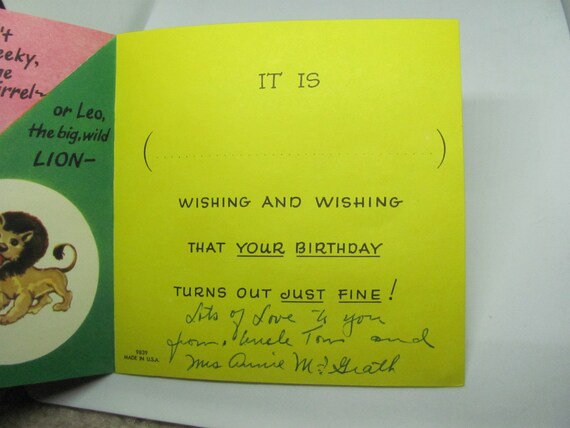 't
eeky,
he
irrel~
or Leo,
the big, wild
LION—
IT IS
(....................................)
WISHING AND WISHING
THAT YOUR BIRTHDAY
TURNS OUT JUST FINE!
Lots of Love to you
from, Uncle Tom and
Mrs Annie McGrath
MADE IN U.S.A.